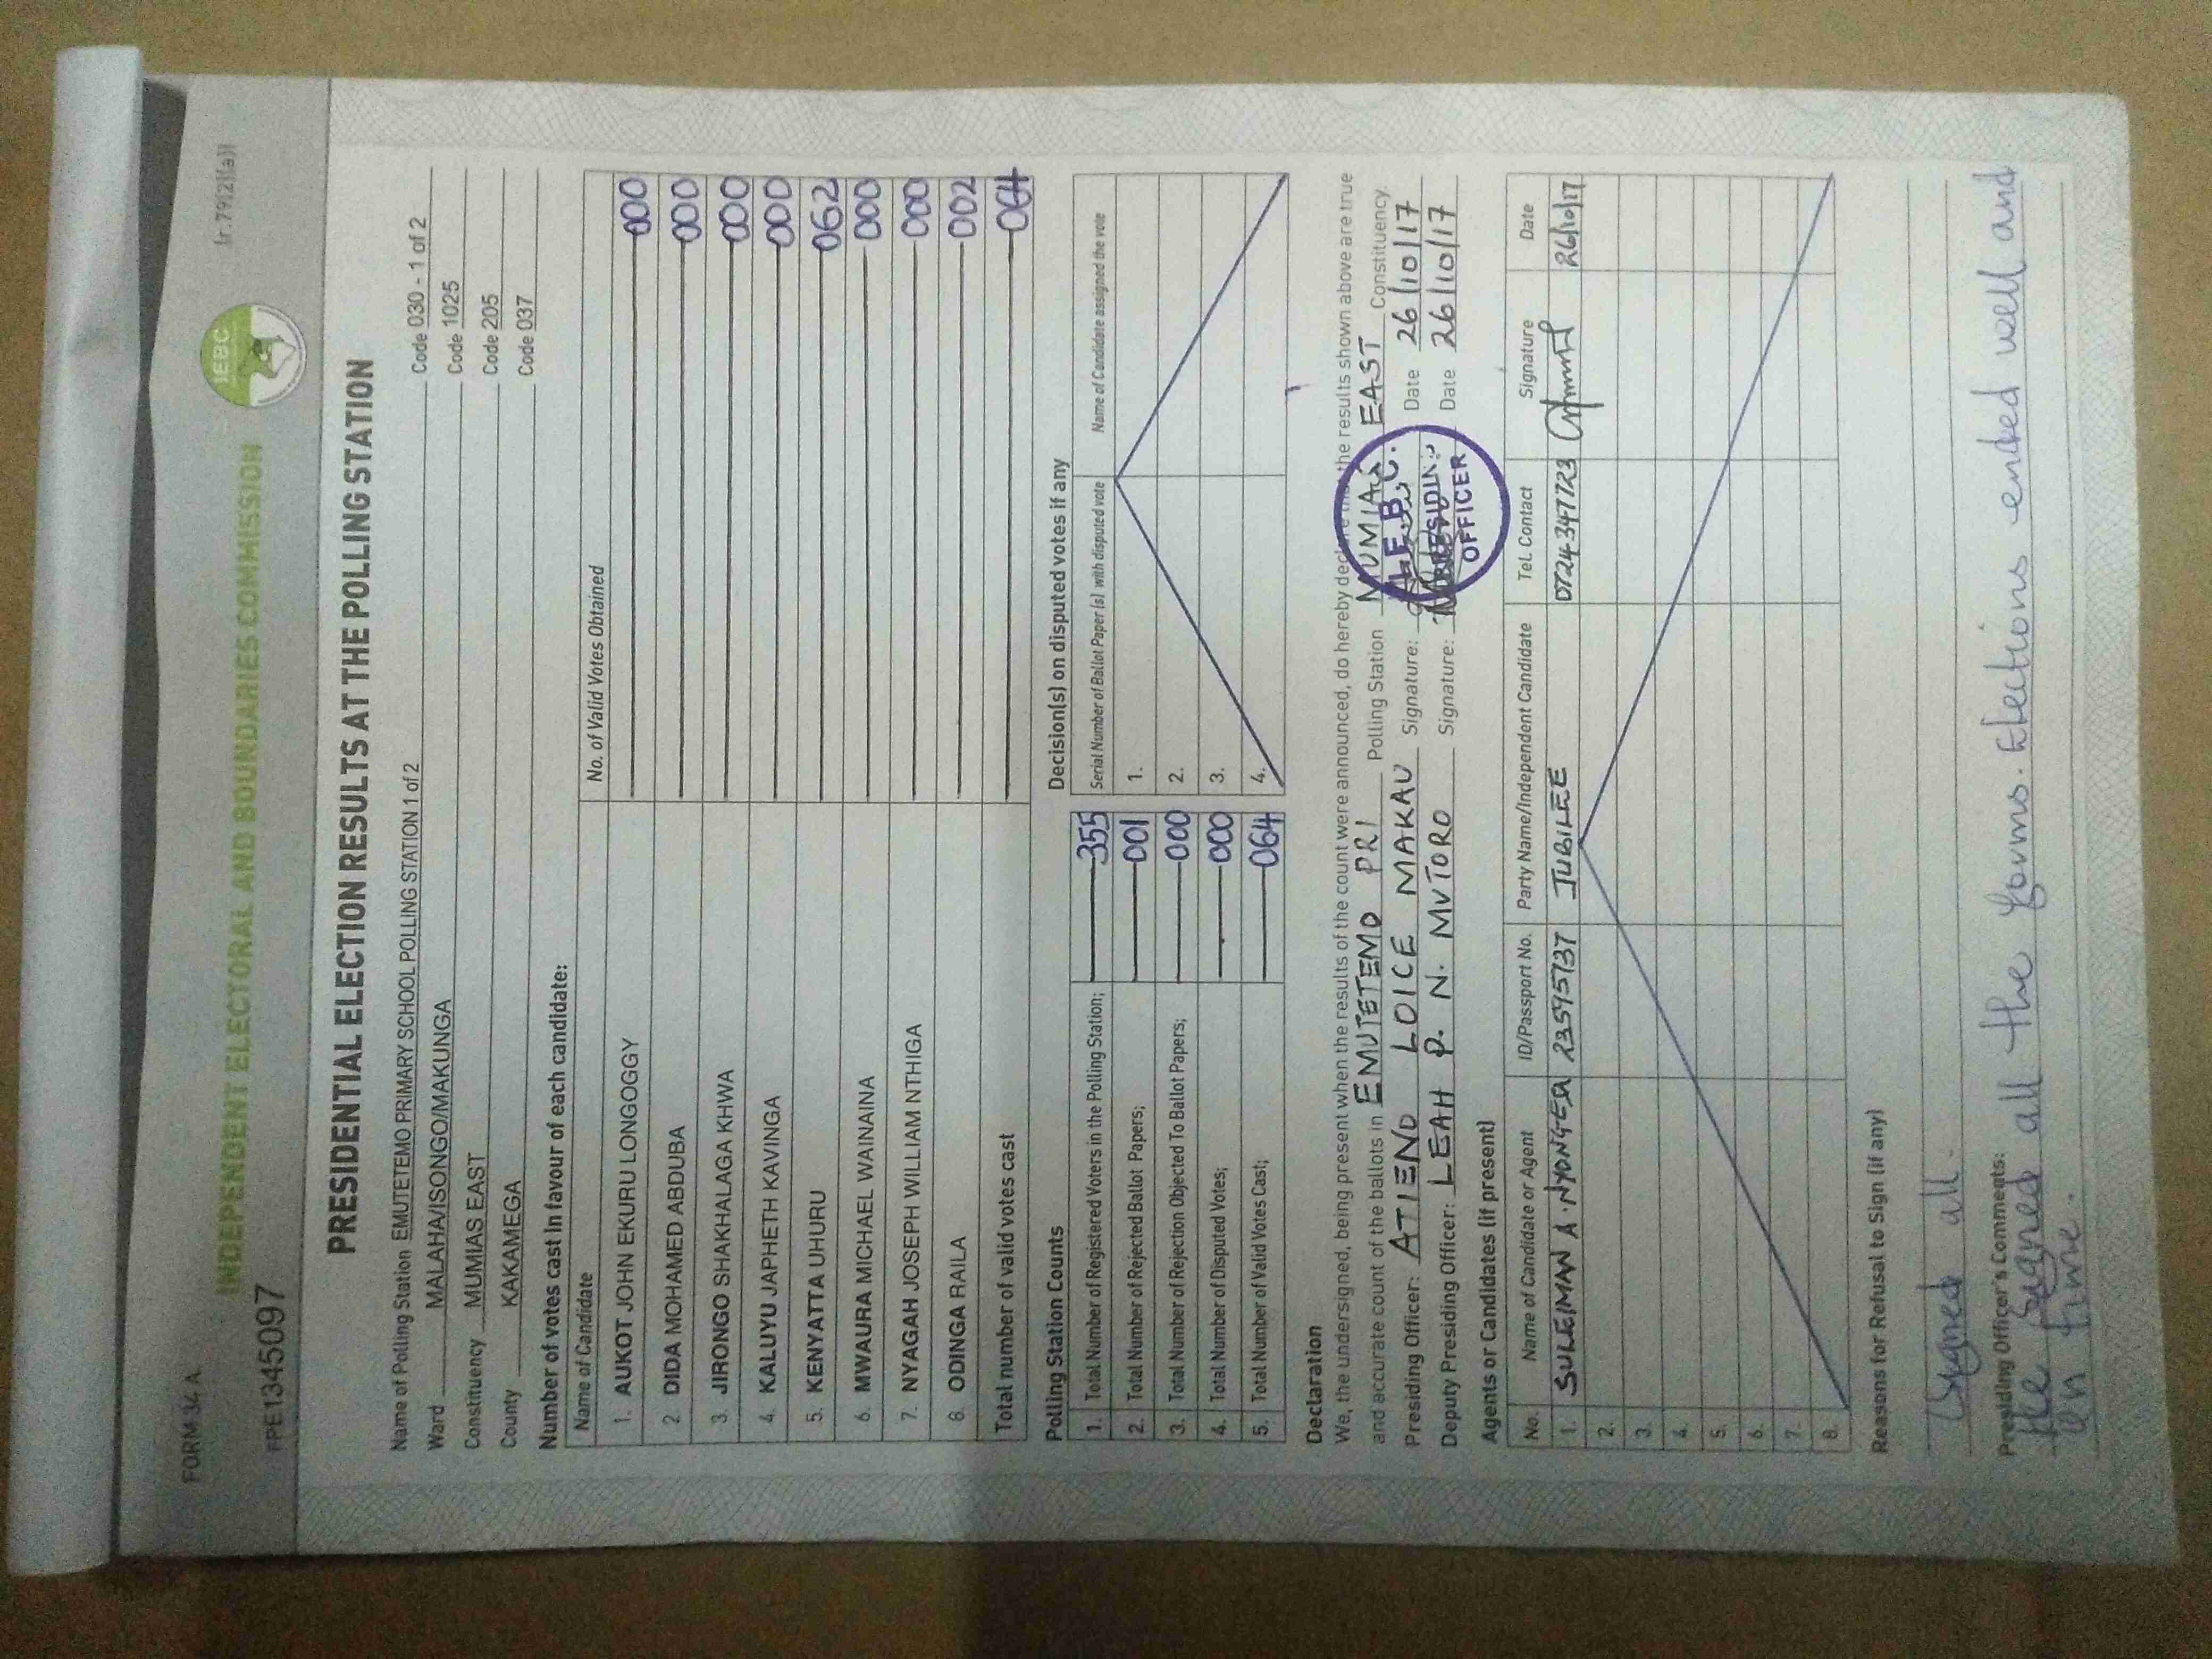 FORM 34 A
[r.79(2)(a)]
INDEPENDENT ELECTORAL AND BOUNDARIES COMMISSION
IEBC
PPE1345097
PRESIDENTIAL ELECTION RESULTS AT THE POLLING STATION
Name of Polling Station EMUTETEMO PRIMARY SCHOOL POLLING STATION 1 of 2 Code 030 - 1 of 2
Ward MALAHA/ISONGO/MAKUNGA Code 1025
Constituency MUMIAS EAST Code 205
County KAKAMEGA Code 037
Number of votes cast in favour of each candidate:
Name of Candidate No. of Valid Votes Obtained
1. AUKOT JOHN EKURU LONGOGGY 000
2 DIDA MOHAMED ABDUBA 000
3. JIRONGO SHAKHALAGA KHWA 000
4. KALUYU JAPHETH KAVINGA 000
5. KENYATTA UHURU 062
6. MWAURA MICHAEL WAINAINA 000
7. NYAGAH JOSEPH WILLIAM NTHIGA 000
8 ODINGA RAILA 002
Total number of valid votes cast 064
Polling Station Counts
1. Total Number of Registered Voters in the Polling Station; 355
2. Total Number of Rejected Ballot Papers; 001
3. Total Number of Rejection Objected To Ballot Papers; 000
4. Total Number of Disputed Votes; 000
5. Total Number of Valid Votes Cast; 064
Decision(s) on disputed votes if any
Serial Number of Ballot Paper (s) with disputed vote Name of Candidate assigned the vote
1.
2.
3.
4.
Declaration
We, the undersigned, being present when the results of the count were announced, do hereby declare that the results shown above are true
and accurate count of the ballots in EMUTETEMO PRI Polling Station MUMIAS EAST Constituency
Presiding Officer: ATIENO LOICE MAKAU Signature: Date 26/10/17
Deputy Presiding Officer: LEAH P. N. MUTORO Signature: Date 26/10/17
I.E.B.C.
PRESIDING
OFFICER
Agents or Candidates (if present)
No. Name of Candidate or Agent ID/Passport No. Party Name/Independent Candidate Tel. Contact Signature Date
1. SULEIMAN A. NYONGESA 23595737 JUBILEE 0724347723 26/10/17
2.
3.
4.
5.
6.
7.
8.
Reasons for Refusal to Sign (if any)
Signed all.
Presiding Officer's Comments:
He signed all the forms. Elections ended well and
in time.